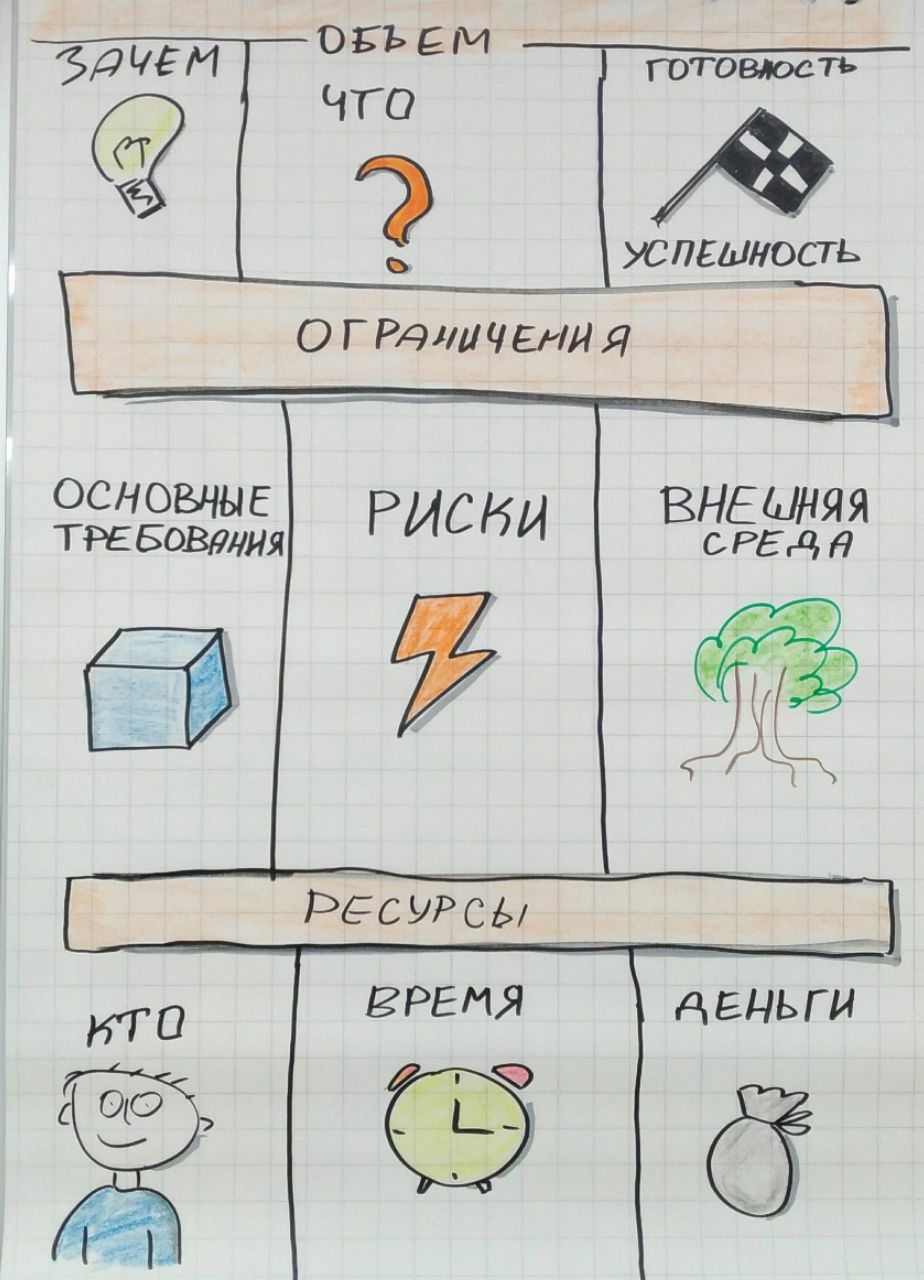 ОБЪЕМ
ЗАЧЕМ
ЧТО
ГОТОВНОСТЬ
УСПЕШНОСТЬ
ОГРАНИЧЕНИЯ
ОСНОВНЫЕ
ТРЕБОВАНИЯ
РИСКИ
ВНЕШНЯЯ
СРЕДА
РЕСУРСЫ
КТО
ВРЕМЯ
ДЕНЬГИ